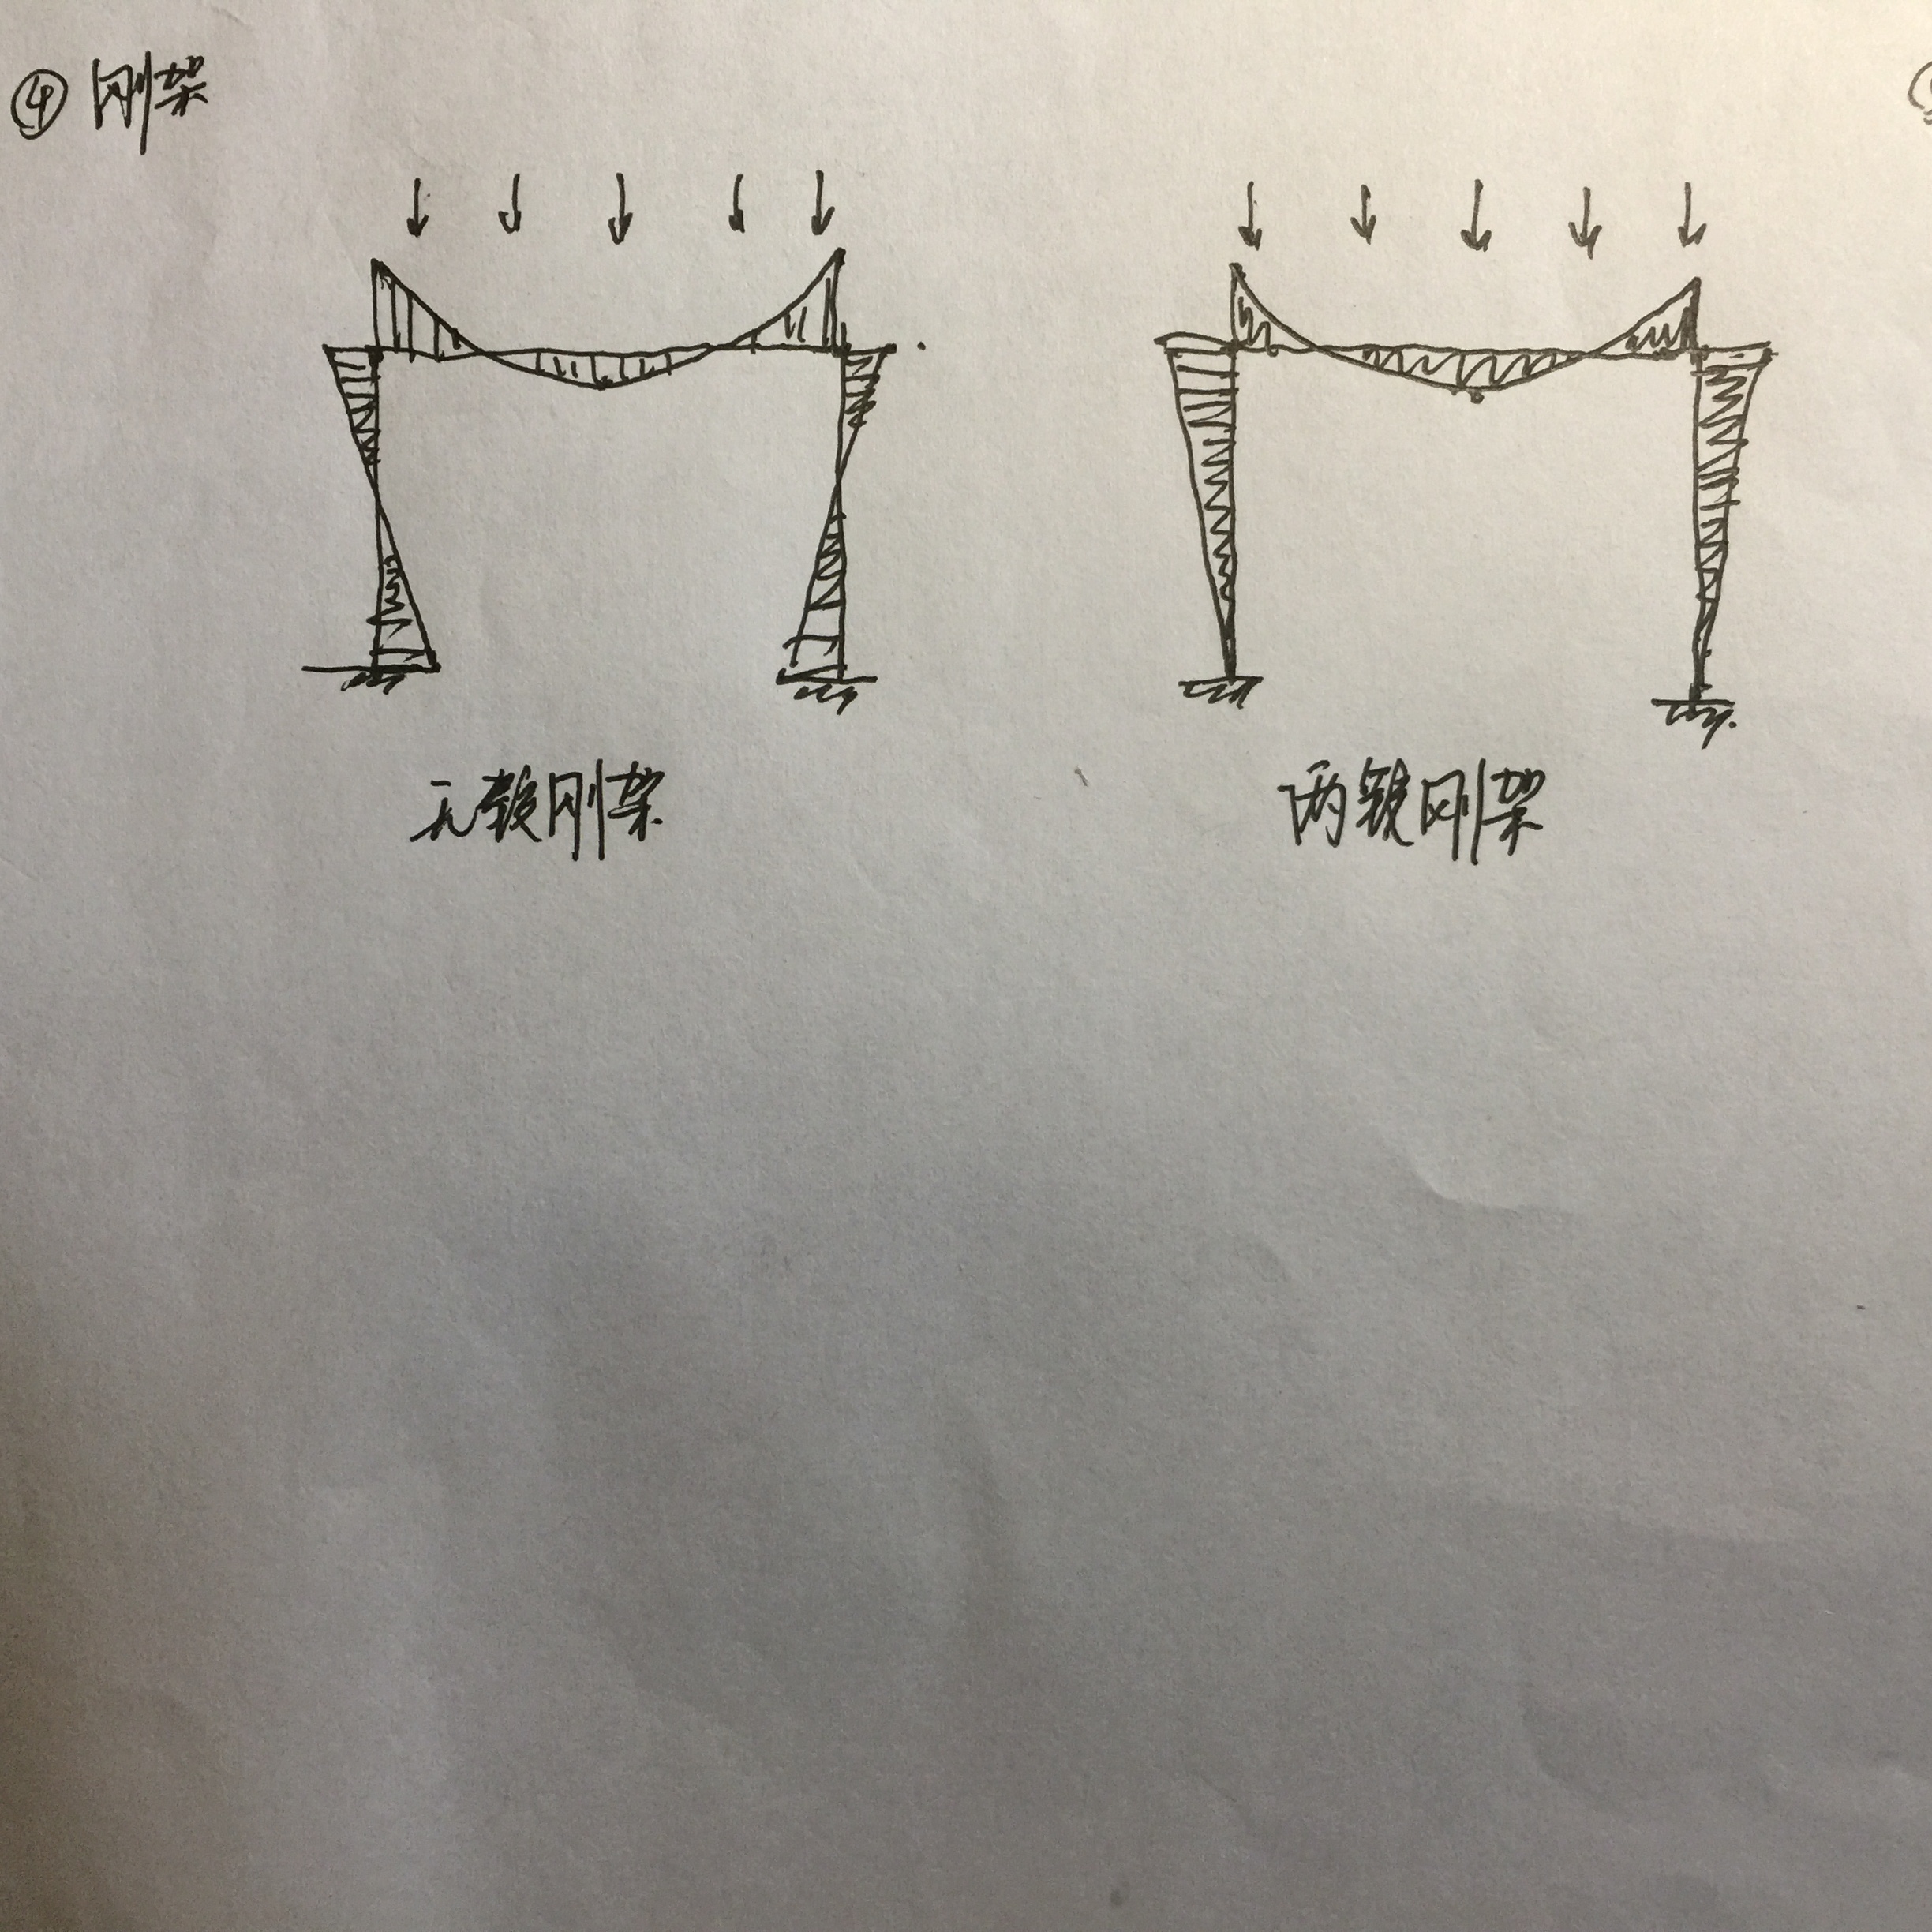 ④ 刚架
无铰刚架
两铰刚架